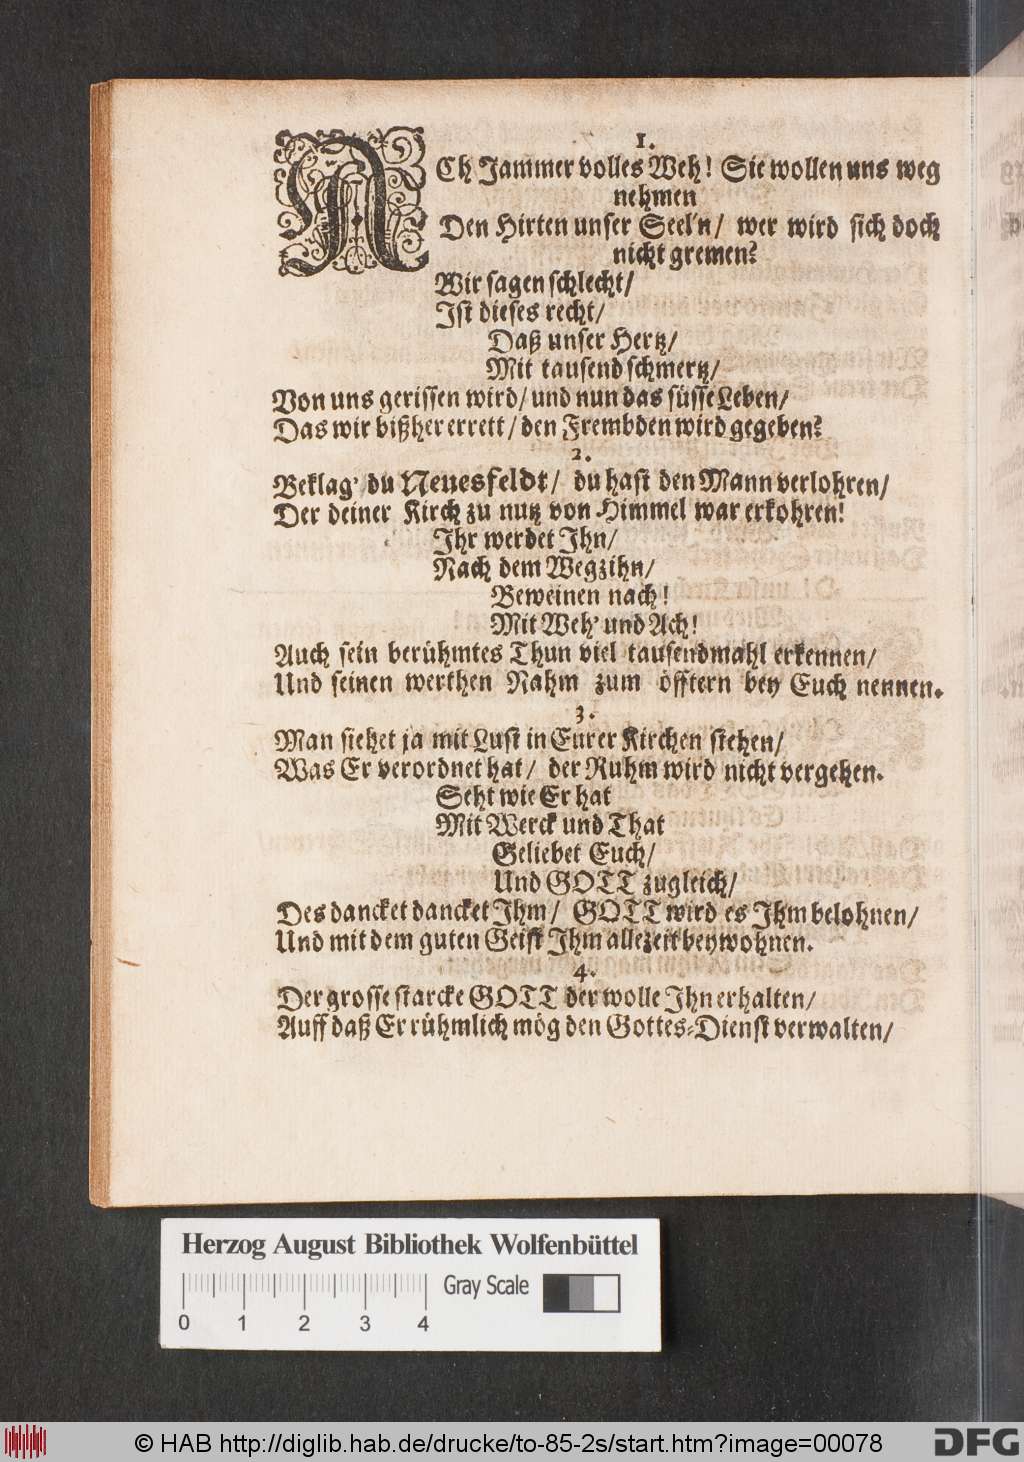 1.
ACh Jammer volles Weh! Sie wollen uns weg
nehmen
Den Hirten unser Seel'n/ wer wird sich doch
nicht gremen?
Wir sagen schlecht/
Ist dieses recht/
Daß unser Hertz/
Mit tausend schmertz/
Von uns gerissen wird/ und nun das süsse Leben/
Das wir bißher errett/ den Frembden wird gegeben?
2.
Beklag' du Neuesfeldt/ du hast den Mann verlohren/
Der deiner Kirch zu nutz von Himmel war erkohren!
Ihr werdet Ihn/
Nach dem Wegzihn/
Beweinen nach!
Mit Weh' und Ach!
Auch sein berühmtes Thun viel tausendmahl erkennen/
Und seinen werthen Nahm zum öfftern bey Euch nennen.
3.
Man siehet ja mit Lust in Eurer Kirchen stehen/
Was Er verordnet hat/ der Ruhm wird nicht vergehen.
Seht wie Er hat
Mit Werck und That
Geliebet Euch/
Und GOTT zugleich/
Des dancket dancket Ihm/ GOTT wird es Ihm belohnen/
Und mit dem guten Geist Ihm allezeit beywohnen.
4.
Der grosse starcke GOTT der wolle Ihn erhalten/
Auff daß Er rühmlich mög den Gottes-Dienst verwalten/
Herzog August Bibliothek Wolfenbüttel
Gray Scale
0 1 2 3 4
© HAB http://diglib.hab.de/drucke/to-85-2s/start.htm?image=00078
DFG